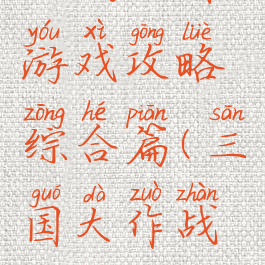 yóu xì gōng lüè
游戏攻略
zōng hé piān sān
综合篇(三
guó dà zuò zhàn
国大作战